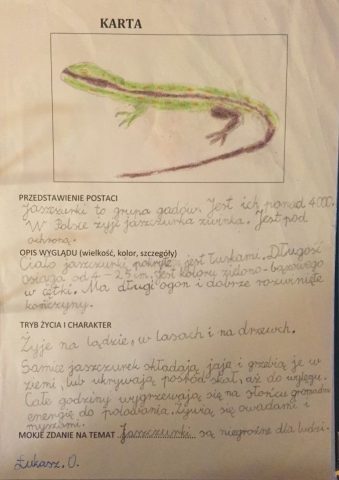 KARTA
PRZEDSTAWIENIE POSTACI
Jaszczurki to grupa gadów. Jest ich ponad 4000.
W Polsce żyje jaszczurka zwinka. Jest pod
ochroną.
OPIS WYGLĄDU (wielkość, kolor, szczegóły)
Ciało jaszczurki pokryte jest łuskami. Długość
osiąga od 4 - 25 cm. Jest koloru zielono-brązowego
w cętki. Ma długi ogon i dobrze rozwinięte
kończyny.
TRYB ŻYCIA I CHARAKTER
Żyje na lądzie, w lasach i na drzewch.
Samice jaszczurek składają jaja i grzebią je w
ziemi, lub ukrywają pośród skał, aż do wylęgu.
Całe godziny wygrzewają się na słońcu gromadni
energię do polowania. Żywią się owadami i
myszami.
MOKJE ZDANIE NA TEMAT Jaszczurki są niegroźne dla ludzi.
Łukasz. O.